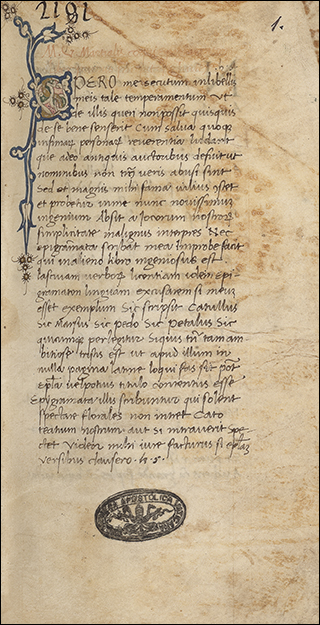 2191
1.
SPERO me secutum in libellis
meis tale temperamentum ut
de illis queri non possit quisquis
de se bene senserit Cum salva quoq
infimaꝝ personaꝝ reverentia ludant
que adeo antiquis auctoribus defuit ut
nominibus non tm̄ veris abusi sint
Sed et magnis mihi fama vilius
et probetur in me nunc novissimum
ingenium Absit a iocorum nostroꝝ
simplicitate malignus interpres Nec
epigramata scribat mea Improbe facit
qui in alieno libro ingeniosus est
lascivam verboꝝ licentiam idest epi
gramaton linguam excusarem si meum
esset exemplum Sic scripsit Catullus
Sic Marsus Sic pedo Sic Sic
perlegitur Siquis tñ tam am
bitiose tristis est ut apud illum in
nulla pagina latine loqui fas sit pot
vel potius titulo contentus esse
Epigramata illis scribuntur qui solent
spectare florales non intret Cato
teatrum nostrum aut si intraverit spe
ctet Videor mihi iure facturus si
versibus clausero
APOSTOLICA